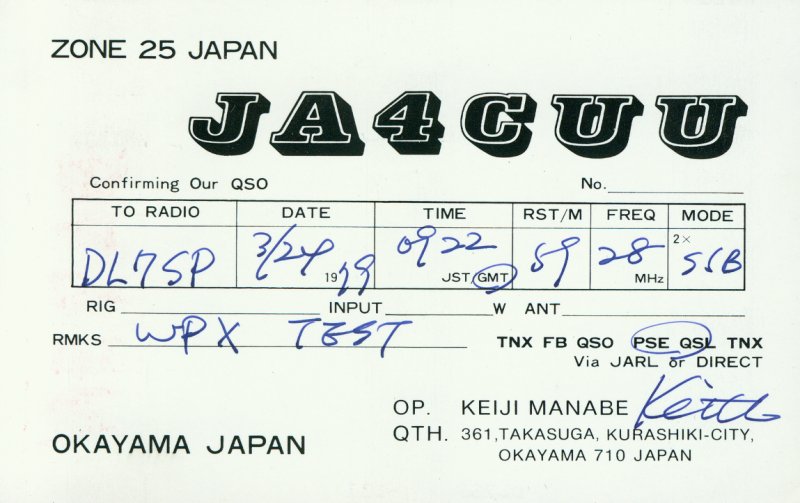 ZONE 25 JAPAN
JA4CUU
Confirming Our QSO No.
TO RADIO DATE TIME RST/M FREQ MODE
DL7SP 3/24 1979 0922 JST, GMT 59 28 MHz 2× SSB
RIG INPUT W ANT
RMKS WPX TEST TNX FB QSO PSE QSL TNX
Via JARL or DIRECT
OP. KEIJI MANABE Keith
QTH. 361,TAKASUGA, KURASHIKI-CITY,
OKAYAMA JAPAN OKAYAMA 710 JAPAN